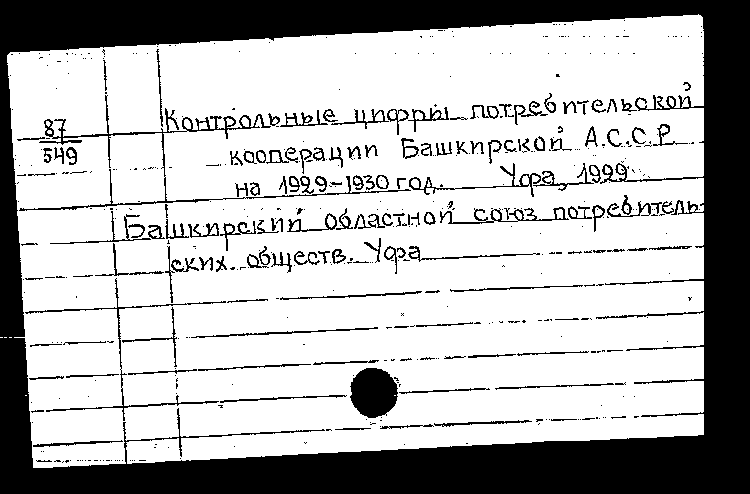 87
549
Контрольные цифры потребительской
кооперации Башкирской А.С.С.Р
на 1929-1930 год. Уфа, 1929
Башкирский областной союз потребитель-
ских. обществ. Уфа